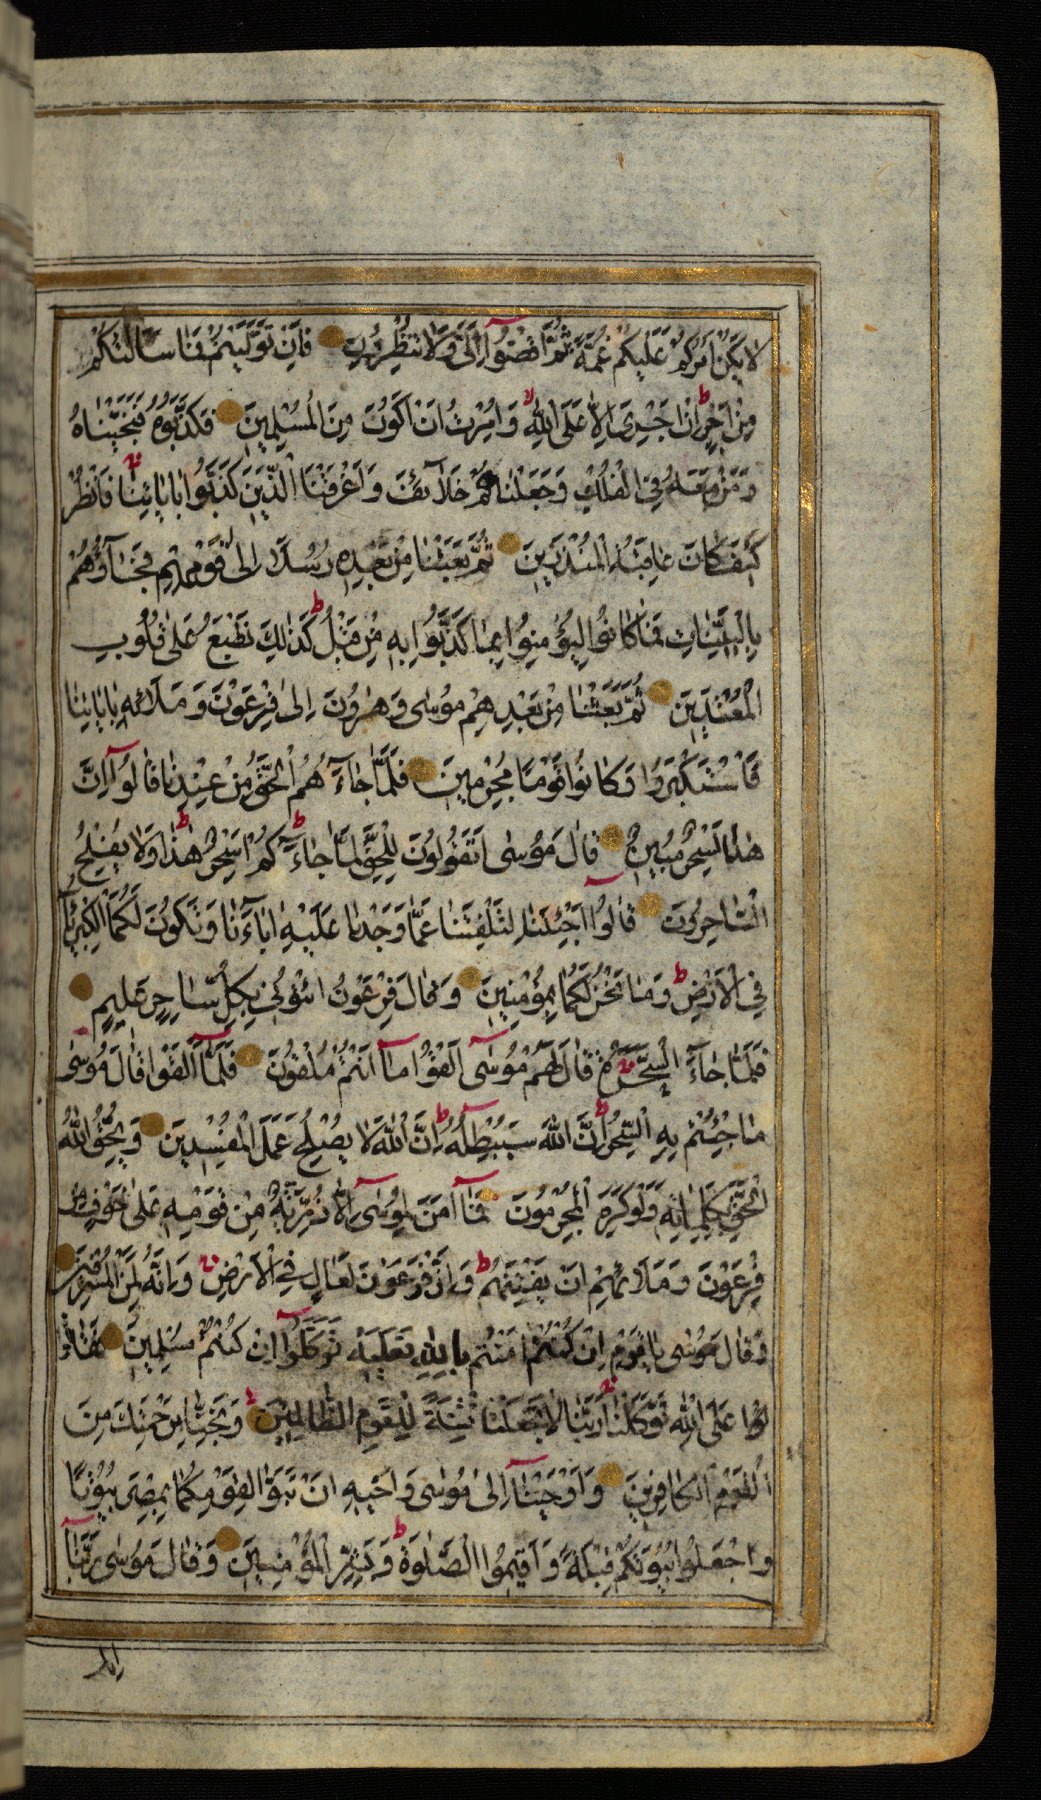 لَا يَكُنْ اَمْرُكُمْ عَلَيْكُمْ غُمَّةً ثُمَّ اقْضُوٓا اِلَىَّ وَلَا تُنْظِرُونِ فَاِنْ تَوَلَّيْتُمْ فَمَا سَاَلْتُكُمْ
مِنْ اَجْرٍ اِنْ اَجْرِىَ اِلَّا عَلَى اللّٰهِ وَاُمِرْتُ اَنْ اَكُونَ مِنَ الْمُسْلِمِينَ فَكَذَّبُوهُ فَنَجَّيْنَاهُ
وَمَنْ مَعَهُ فِى الْفُلْكِ وَجَعَلْنَاهُمْ خَلَآئِفَ وَاَغْرَقْنَا الَّذِينَ كَذَّبُوا بِاٰيَاتِنَا فَانْظُرْ
كَيْفَ كَانَ عَاقِبَةُ الْمُنْذَرِينَ ثُمَّ بَعَثْنَا مِنْ بَعْدِهِ رُسُلًا اِلٰى قَوْمِهِمْ فَجَآؤُهُمْ
بِالْبَيِّنَاتِ فَمَا كَانُوا لِيُؤْمِنُوا بِمَا كَذَّبُوا بِهِ مِنْ قَبْلُ كَذٰلِكَ نَطْبَعُ عَلٰى قُلُوبِ
الْمُعْتَدِينَ ثُمَّ بَعَثْنَا مِنْ بَعْدِهِمْ مُوسٰى وَهٰرُونَ اِلٰى فِرْعَوْنَ وَمَلَائِهِ بِاٰيَاتِنَا
فَاسْتَكْبَرُوا وَكَانُوا قَوْمًا مُجْرِمِينَ فَلَمَّا جَآءَهُمُ الْحَقُّ مِنْ عِنْدِنَا قَالُوٓا اِنَّ
هٰذَا لَسِحْرٌ مُبِينٌ قَالَ مُوسٰى اَتَقُولُونَ لِلْحَقِّ لَمَّا جَآءَكُمْ اَسِحْرٌ هٰذَا وَلَا يُفْلِحُ
السَّاحِرُونَ قَالُوٓا اَجِئْتَنَا لِتَلْفِتَنَا عَمَّا وَجَدْنَا عَلَيْهِ اٰبَآءَنَا وَتَكُونَ لَكُمَا الْكِبْرِيَآءُ
فِى الْاَرْضِ وَمَا نَحْنُ لَكُمَا بِمُؤْمِنِينَ وَقَالَ فِرْعَوْنُ ائْتُونِى بِكُلِّ سَاحِرٍ عَلِيمٍ
فَلَمَّا جَآءَ السَّحَرَةُ قَالَ لَهُمْ مُوسٰىٓ اَلْقُوا مَآ اَنْتُمْ مُلْقُونَ فَلَمَّآ اَلْقَوْا قَالَ مُوسٰى
مَا جِئْتُمْ بِهِ السِّحْرُ اِنَّ اللّٰهَ سَيُبْطِلُهُ اِنَّ اللّٰهَ لَا يُصْلِحُ عَمَلَ الْمُفْسِدِينَ وَيُحِقُّ اللّٰهُ
الْحَقَّ بِكَلِمَاتِهِ وَلَوْ كَرِهَ الْمُجْرِمُونَ فَمَآ اٰمَنَ لِمُوسٰىٓ اِلَّا ذُرِّيَّةٌ مِنْ قَوْمِهِ عَلٰى خَوْفٍ مِنْ
فِرْعَوْنَ وَمَلَائِهِمْ اَنْ يَفْتِنَهُمْ وَاِنَّ فِرْعَوْنَ لَعَالٍ فِى الْاَرْضِ وَاِنَّهُ لَمِنَ الْمُسْرِفِينَ
وَقَالَ مُوسٰى يَا قَوْمِ اِنْ كُنْتُمْ اٰمَنْتُمْ بِاللّٰهِ فَعَلَيْهِ تَوَكَّلُوٓا اِنْ كُنْتُمْ مُسْلِمِينَ فَقَا
لُوا عَلَى اللّٰهِ تَوَكَّلْنَا رَبَّنَا لَا تَجْعَلْنَا فِتْنَةً لِلْقَوْمِ الظَّالِمِينَ وَنَجِّنَا بِرَحْمَتِكَ مِنَ
الْقَوْمِ الْكَافِرِينَ وَاَوْحَيْنَآ اِلٰى مُوسٰى وَاَخِيهِ اَنْ تَبَوَّاٰ لِقَوْمِكُمَا بِمِصْرَ بُيُوتًا
وَاجْعَلُوا بُيُوتَكُمْ قِبْلَةً وَاَقِيمُوا الصَّلٰوةَ وَبَشِّرِ الْمُؤْمِنِينَ وَقَالَ مُوسٰى رَبَّنَآ